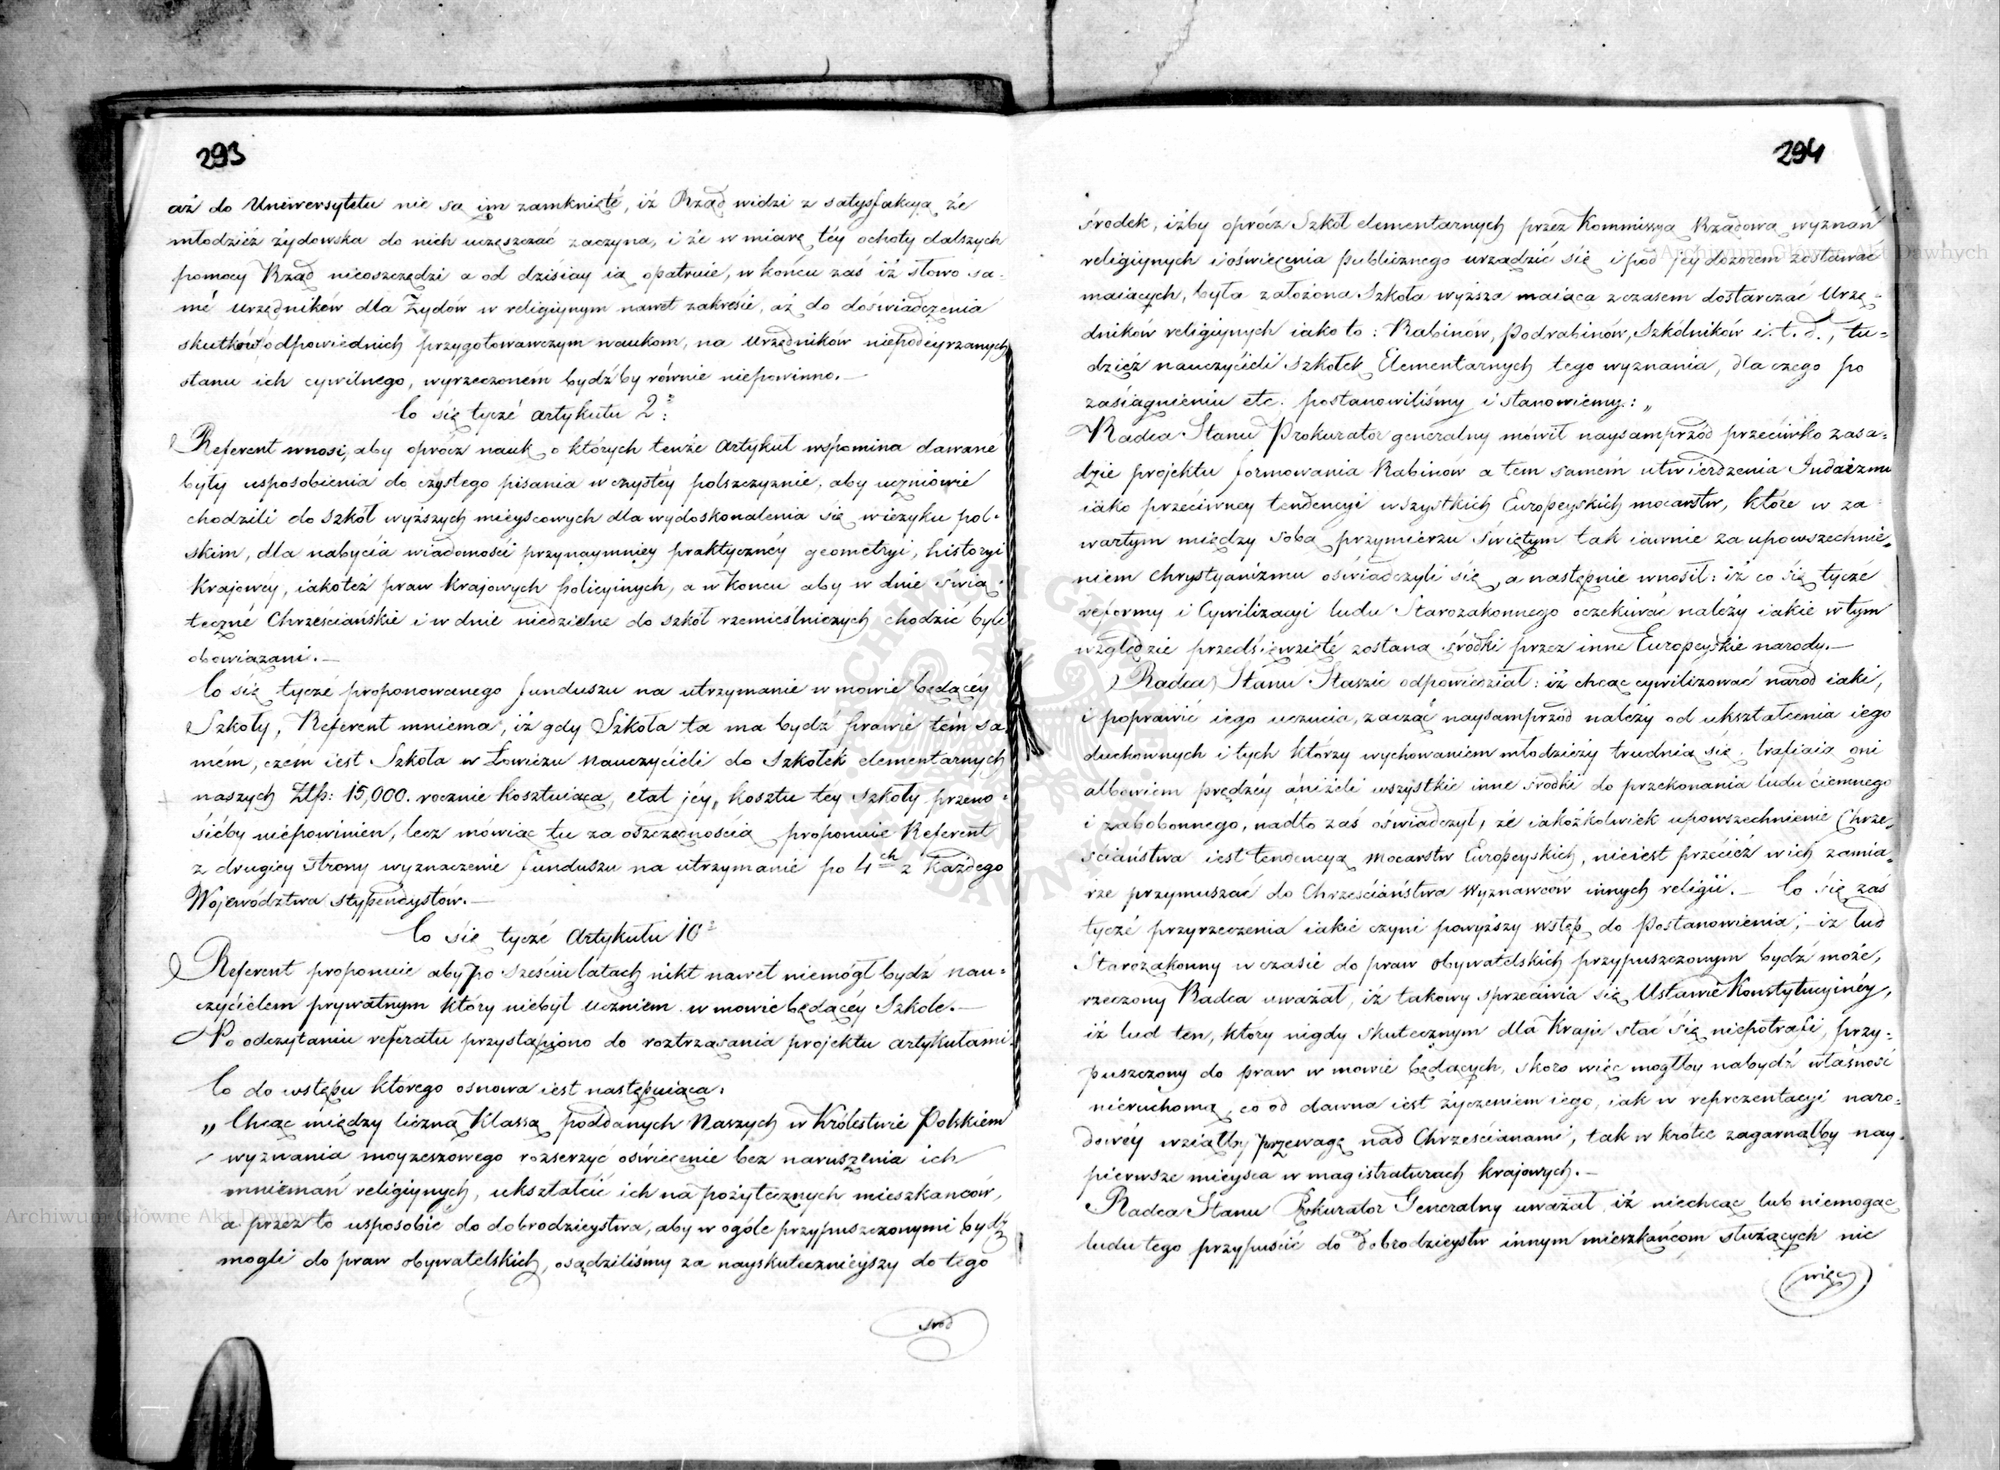 293
aż do Uniwersytetu nie są im zamknięté, iż Rząd widzi z satysfakcyą że
młodzież żydowska do nich uczęszczać zaczyna, i że w miarę téy ochoty dalszych
pomocy Rząd nieoszczędzi a od dzisiay ią opatruie, w końcu zaś iż słowo sa-
mé urzędników dla Żydów w religiynym nawet zakresie, aż do doświadczenia
skutków odpowiednich przygotowawczym naukom, na urzędników niepodeyrzanych
stanu ich cywilnego, wyrzeczoném bydźby równie niepowinno.—
Co się tyczé artykułu 2º:
Referent wnosi, aby oprócz nauk o których tenże Artykuł wspomina dawané
były usposobienia do czystego pisania w czystéy polszczyznie, aby uczniowie
chodzili do szkół wyższych mieyscowych dla wydoskonalenia się w ięzyku pol-
skim, dla nabycia wiadomości przynaymniéy praktycznéy geometryi, historyi
Krajowéy, iakoteż praw Krajowych policyinych, a w końcu aby w dnie świą-
teczné Chrześciańskie i w dnie niedzielne do szkół rzemieślniczych chodzić byli
obowiązani.—
Co się tyczé proponowanego funduszu na utrzymanie w mowie będącéy
Szkoły, Referent mniema, iż gdy Szkoła ta ma bydź prawie tém sa-
mém, czém iest Szkoła w Łowiczu Nauczycieli do Szkółek elementarnych
naszych Złp: 15,000. rocznie kosztuiąca, etat jéy, kosztu téy szkoły przeno-
sićby niepowinien, lecz mówiąc tu za oszczędnością proponuie Referent
z drugiéy strony wyznaczenie funduszu na utrzymanie po 4ch z Każdego
Województwa stypendystów.—
Co się tyczé Artykułu 10º
Referent proponuie aby po sześciu latach nikt nawet niemógł bydź nau-
czycielem prywatnym który niebył uczniem w mowie będącéy Szkole.—
Po odczytaniu referatu przystąpiono do roztrząsania projektu artykułami.
Co do wstępu którego osnowa iest następuiąca:
„Chcąc między liczną Klassą poddanych Naszych w Królestwie Polskiem
wyznania moyżeszowego rozszerzyć oświecenie bez naruszenia ich
mniemań religiynych, ukształcić ich na pożytecznych mieszkańców,
a przez to usposobić do dobrodzieystwa, aby w ogóle przypuszczonymi bydź
mogli do praw obywatelskich, osądziliśmy za nayskutecznieyszy do tego
środ
294
środek, iżby oprócz Szkół elementarnych przez Kommissyą Rządową wyznań
religiynych i oświecenia publicznego urządzić się i pod jéy dozorem zostawać
maiących, była założona Szkoła wyższa maiąca z czasem dostarczać Urzę-
dników religiynych iako to: Rabinów, Podrabinów, Szkólników i. t. d., tu-
dzież nauczycieli Szkółek Elementarnych tego wyznania, dla czego po
zasiągnieniu etc. postanowiliśmy i stanowiemy:„
Radca Stanu Prokurator generalny mówił naysamprzód przeciwko zasa-
dzie projektu formowania Rabinów a tem samém utwierdzenia Judaizmu
iako przeciwnéy tendencyi wszystkich Europeyskich mocarstw, które w za-
wartym między sobą przymierzu świętym tak iawnie za upowszechnie-
niem chrystyanizmu oświadczyli się, a następnie wnosił: iż co się tyczé
reformy i Cywilizacyi ludu Starozakonnego oczekiwać należy iakie w tym
względzie przedsięwzięté zostaną środki przez inne Europeyskie narody.—
Radca Stanu Staszic odpowiedział: iż chcąc cywilizować naród iaki,
i poprawić iego uczucia, zacząć naysamprzód należy od ukształcenia iego
duchownych i tych którzy wychowaniem młodzieży trudnią się, trafiaią oni
albowiem prędzéy aniżeli wszystkie inne środki do przekonania ludu ciemnego
i zabobonnego, nadto zaś oświadczył, że iakożkolwiek upowszechnienie Chrze-
ściaństwa iest tendencyą mocarstw Europeyskich, nieiest przecież w ich zamia-
rze przymuszać do Chrześciaństwa Wyznawców innych religii.— Co się zaś
tyczé przyrzeczenia iakie czyni powyższy wstęp do Postanowienia, iż lud
Starozakonny w czasie do praw obywatelskich przypuszczonym bydź może,
rzeczony Radca uważał, iż takowy sprzeciwia się Ustawie Konstytucyinéy,
iż lud ten, który nigdy skutecznym dla Kraju stać się niepotrafi, przy-
puszczony do praw w mowie będących, skoro więc mógłby nabydź własność
nieruchomą, co od dawna iest życzeniem iego, iak w reprezentacyi naro-
dowéy wziąłby przewagę nad Chrześcianami, tak w krótce zagarnąłby nay-
pierwsze mieysca w magistraturach krajowych.—
Radca Stanu Prokurator Generalny uważał, iż niechcąc lub niemogąc
ludu tego przypuścić do dobrodzieystw innym mieszkańcom służących nic
więcy
Archiwum Główne Akt Dawnych
Archiwum Główne Akt Dawnych